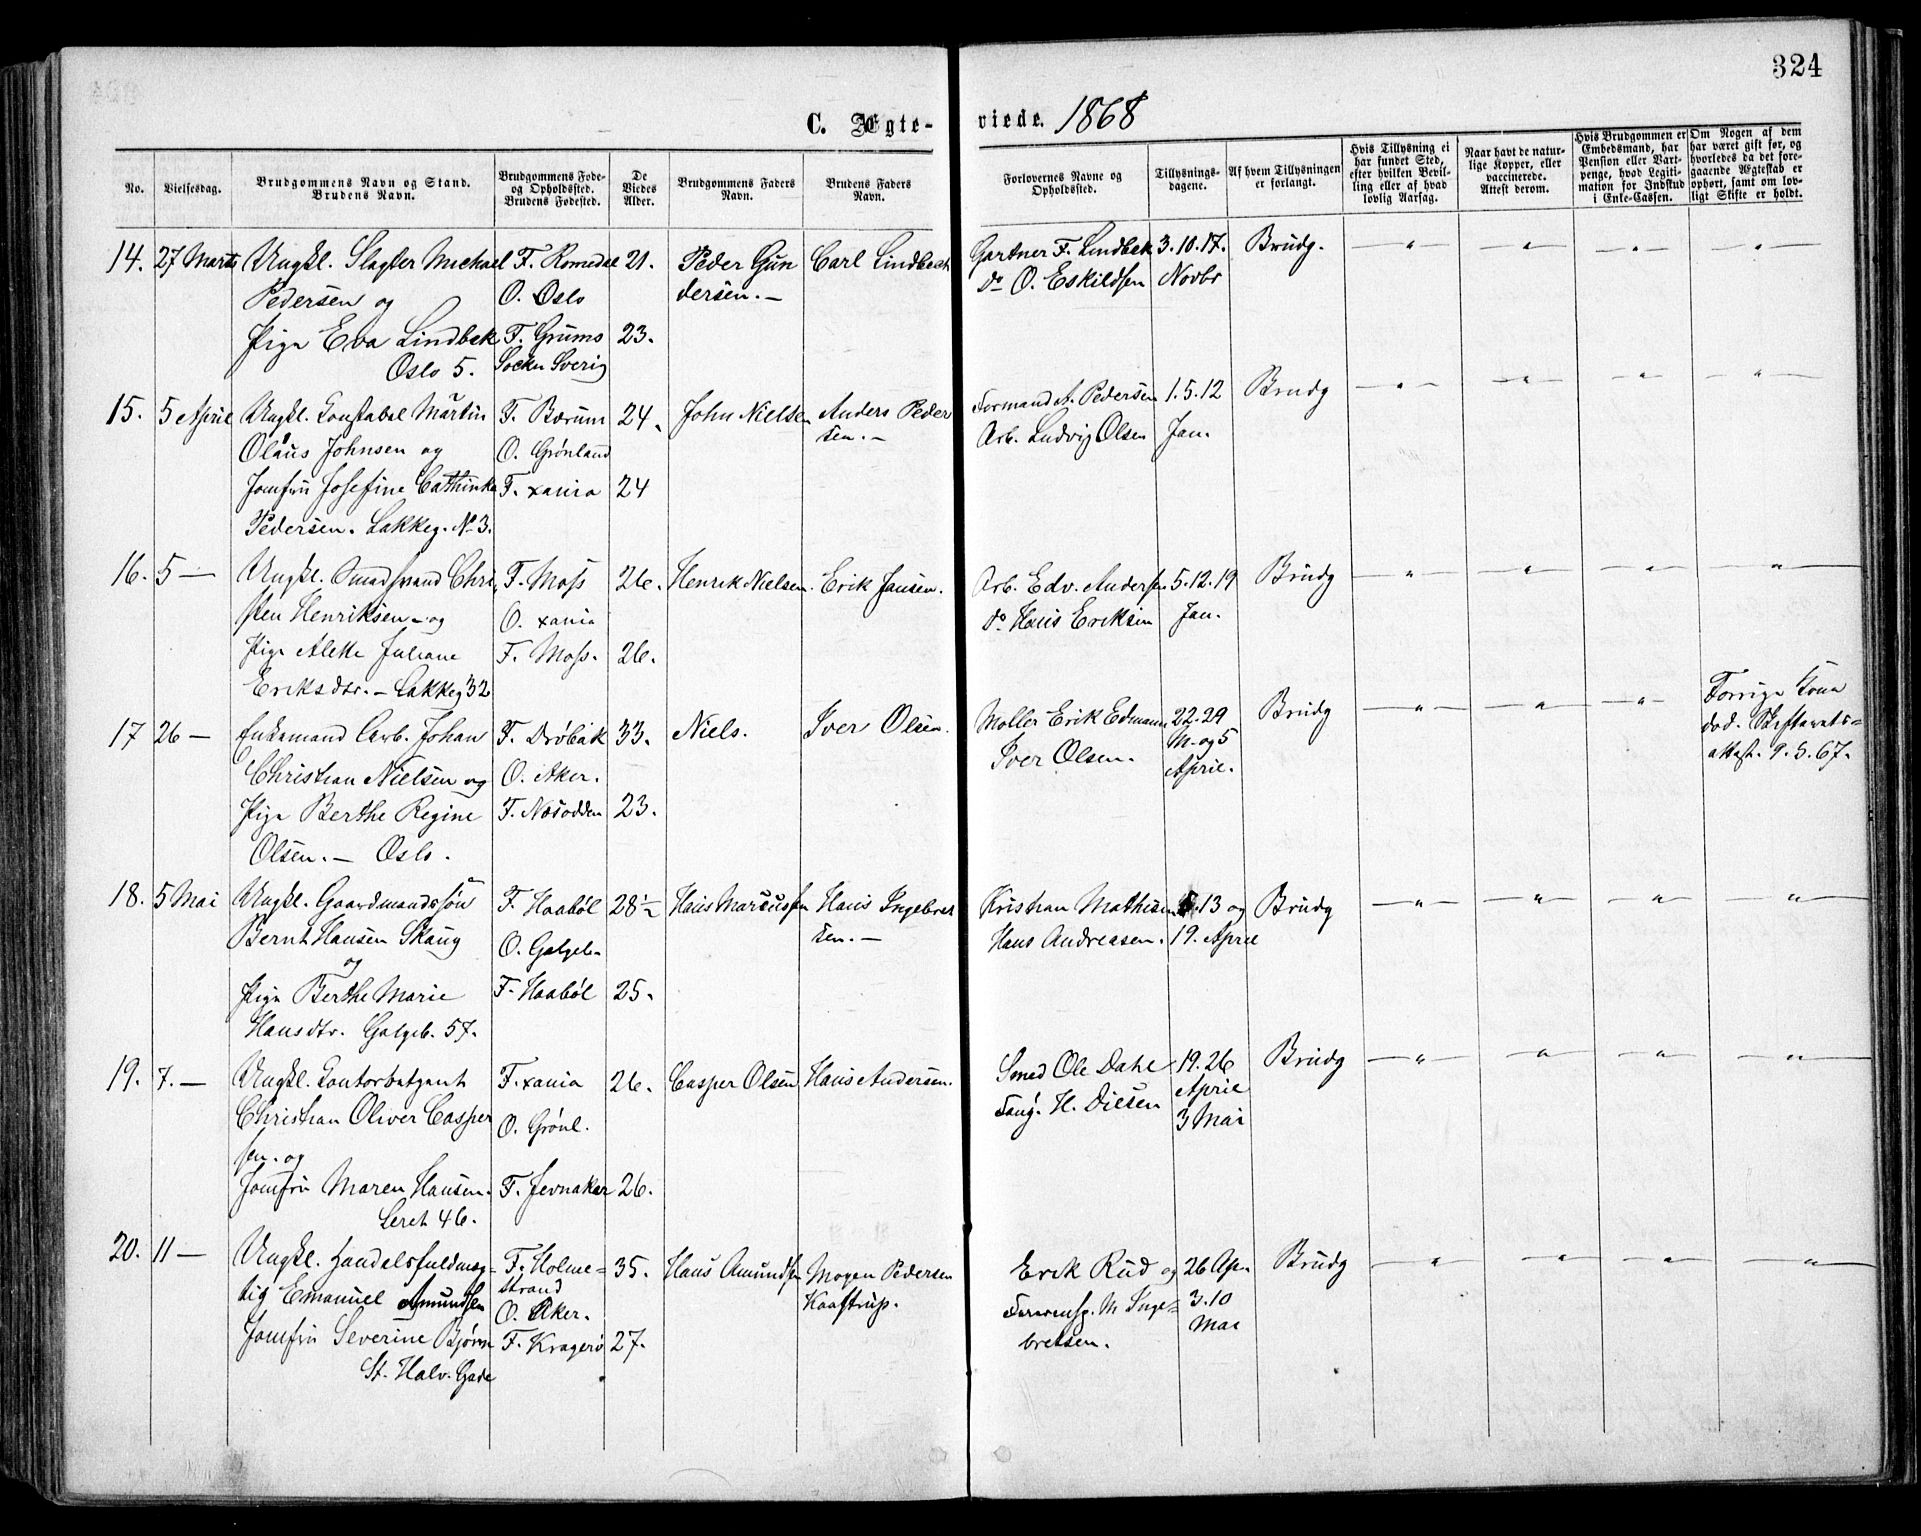 324
C. Ægte- viede. 1868
No.
Vielsesdag.
Brudgommens Navn og Stand.
Brudens Navn.
Brudgommens Føde-
og Opholdssted.
Brudens Fødested.
De
Viedes
Alder.
Brudgommens Faders
Navn.
Brudens Faders
Navn.
Forlovernes Navne og
Opholdssted.
Tillysnings-
dagene.
Af hvem Tillysningen
er forlangt.
Hvis Tillysning ei
har fundet Sted,
efter hvilken Bevil-
ling eller af hvad
lovlig Aarsag.
Naar havt de natur-
lige Kopper, eller
vaccinerede.
Attest derom.
Hvis Brudgommen er
Embedsmand, har
Pension eller Vart-
penge, hvad Legiti-
mation for Indskud
i Enke-Cassen.
Om Nogen af dem
har været gift før, og
hvorledes da det fore-
gaaende Ægteskab er
ophørt, samt om lov-
ligt Skifte er holdt.
14. 27 Marts Ungkl. Slagter Michael F. Romedal 21. Peder Gun Carl Lindbech Gartner F. Lindbek 3. 10. 17. Brudg. — " — " — " — "
Pedersen og O. Oslo dersen. — do O. Eskildsen Novbr
Pige Eva Lindbek F. Grums 23.
Oslo 5. Sockn Sverig
15. 5 April Ungkl. Konstabel Martin F. Bærum 24. John Nielsen Anders Peder Formand A. Pedersen 1. 5. 12 Brudg — " — " — " — "
Olaus Johnsen og O. Grønland sen. — Arb. Ludvig Olsen Jan.
Jomfru Josefine Cathinka F. xania 24
Pedersen. Lakkeg. No 3.
16. 5 — Ungkl. Smedsvend Chri F. Moss 26. Henrik Nielsen. Erik Jansen. Arb. Edv. Andersen 5. 12. 19 Brudg — " — " — " — "
sten Henriksen - og O. xania do Hans Eriksen Jan.
Pige Alette Juliane F. Moss. 26.
Eriksdtr. — Lakkeg 32
17 26 — Enkemand Arb. Johan F. Drøbak 33. Niels. Iver Olsen. Møller Erik Edmann 22. 29 Brudg — " — " — " — Forrige Kone
Christian Nielsen og O. Aker. Iver Olsen. M. og 5 død. Skifterets-
Pige Berthe Regine F. Næsodden 23. April. attest. 9. 5. 67.
Olsen. — Oslo.
18. 5 Mai Ungkl. Gaardmandssøn F. Haabøl 28½ Hans Marcussen Hans Ingebret Kristian Mathisen 5. 13 og Brudg — " — " — " — "
Bernt Hansen Skaug O. Galgeb. sen. — Hans Andreasen. 19. April
og
Pige Berthe Marie F. Haabøl 25.
Hansdtr. Galgeb. 57.
19. 7. — Ungkl. Kontorbetjent F. xania 26. Casper Olsen Hans Andersen. Smed Ole Dahl 19. 26 Brudg — " — " — " — "
Christian Oliver Casper O. Grønl. H. Diesen April
sen. og 3 Mai
Jomfru Maren Hansen. F. Jevnaker 26.
Leret 46.
20. 11 — Ungkl. Handelsfuldmæg- F. Holme- 35. Hans Amundsen Mogen Pedersen Erik Rud og 26 Ap. Brudg — " — " — " — "
tig Emanuel Amundsen strand Kaastrup. M Inge- 3. 10
O. Aker. bretsen. Mai
Jomfru Severine Bjørn F. Kragerø 27.
St. Halv. Gade